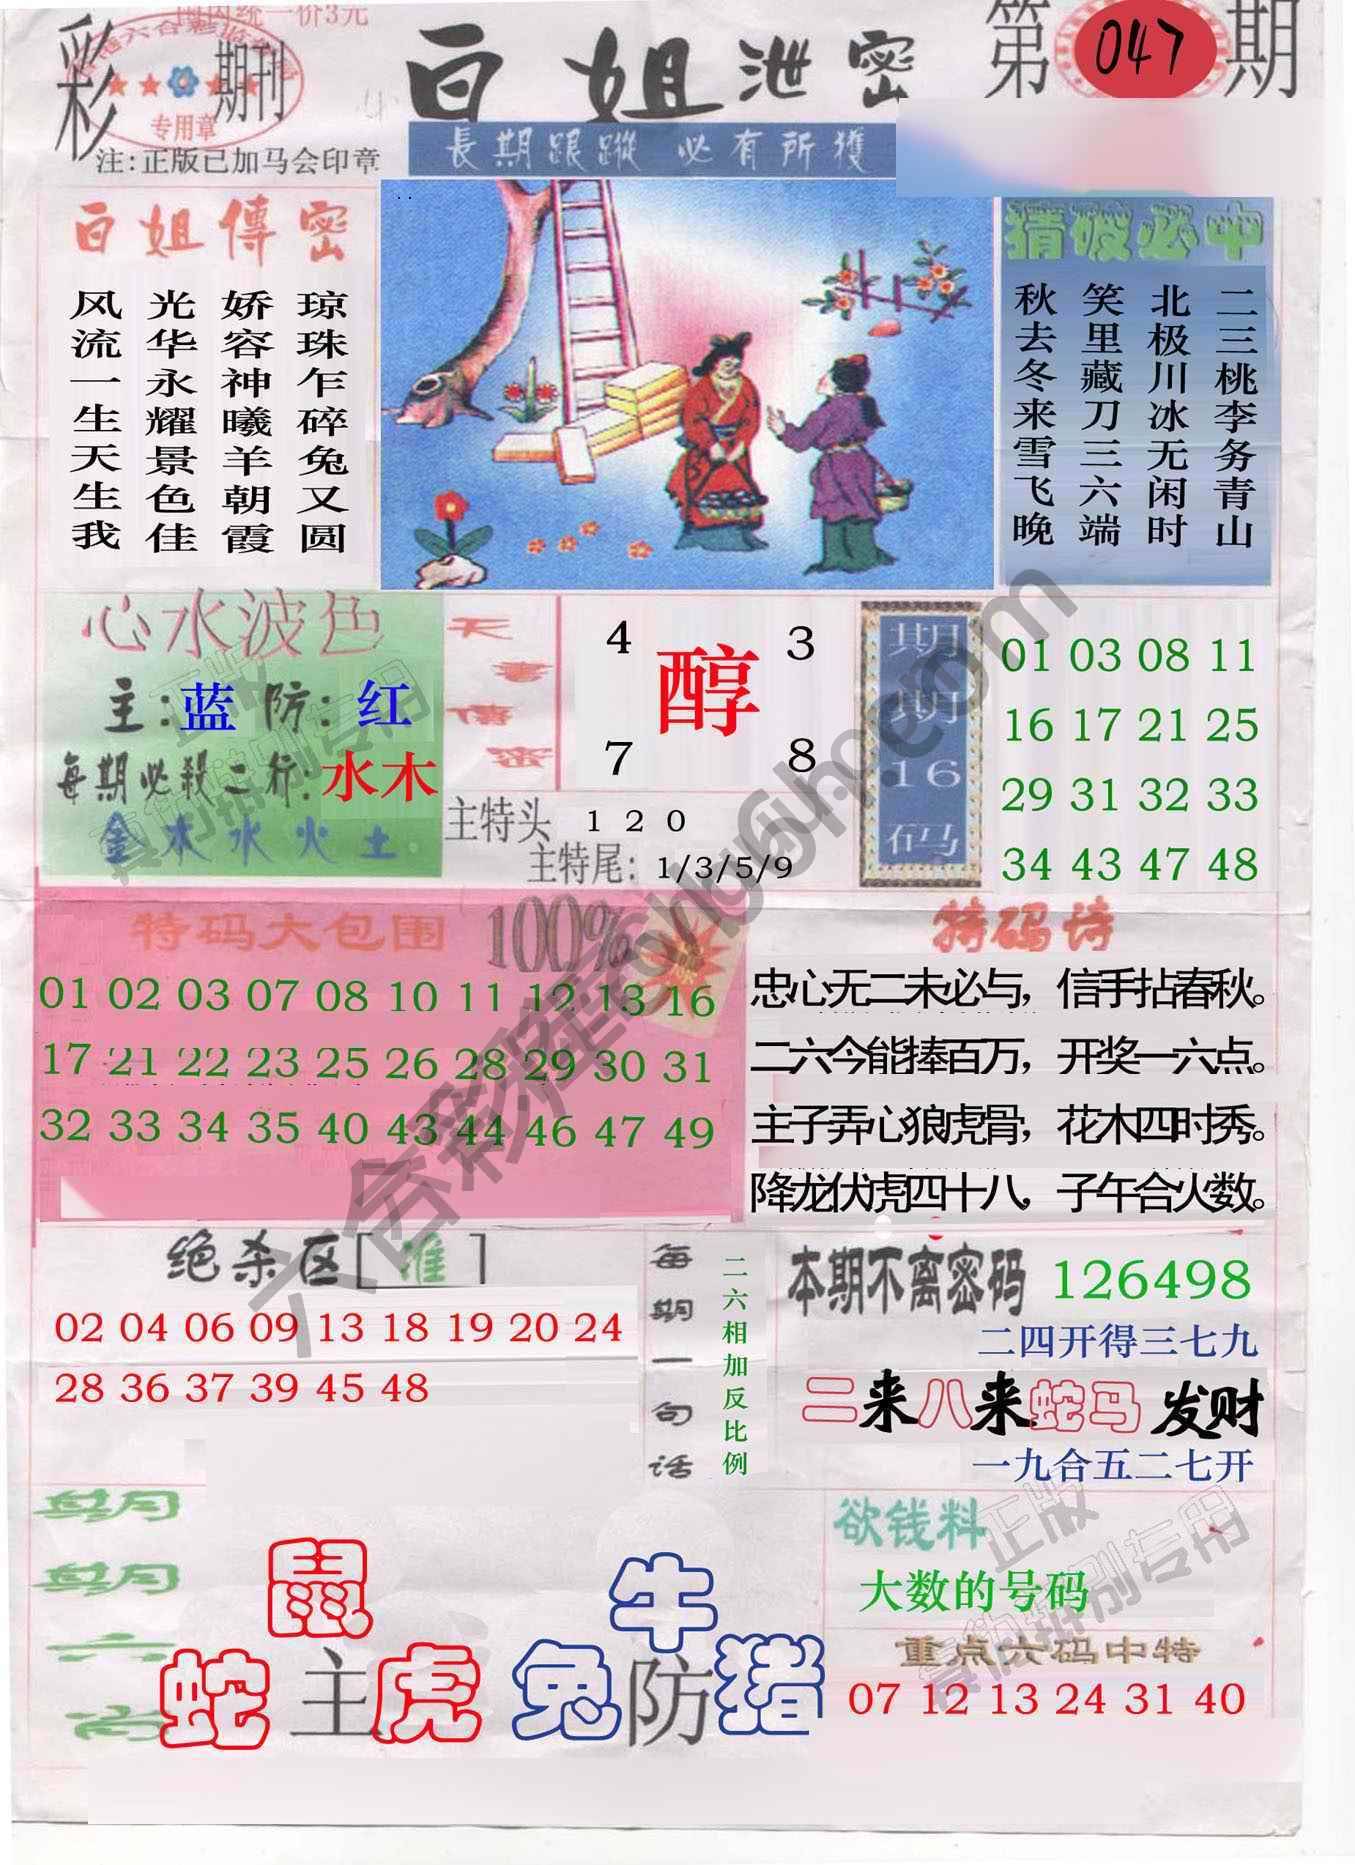 国内统一价3元
彩
期刊
专用章
百姐泄密
第047期
注:正版已加马会印章
長期跟蹤 必有所獲
百姐傳密
风流一生天生我
光华永耀景色佳
娇容神曦羊朝霞
琼珠乍碎兔又圆
猜破必中
秋去冬来雪飞晚
笑里藏刀三六端
北极川冰无闲时
二三桃李务青山
心水波色
主:蓝 防:红
每期必殺二行:水木
金木水火土
天書傳密
4 3
醇
7 8
主特头 1 2 0
主特尾: 1/3/5/9
期期16码
01 03 08 11
16 17 21 25
29 31 32 33
34 43 47 48
特码大包围 100%
01 02 03 07 08 10 11 12 13 16
17 21 22 23 25 26 28 29 30 31
32 33 34 35 40 43 44 46 47 49
特码诗
忠心无二未必与，信手拈春秋。
二六今能捧百万，开奖一六点。
主子弄心狼虎骨，花木四时秀。
降龙伏虎四十八，子午合火数。
绝杀区[准]
02 04 06 09 13 18 19 20 24
28 36 37 39 45 48
每期一句话
二六相加反比例
本期不离密码 126498
二四开得三七九
二来八来蛇马发财
一九合五二七开
期期六肖
鼠
蛇主虎
牛
兔防猪
欲钱料
大数的号码
重点六码中特
07 12 13 24 31 40
正版
正版